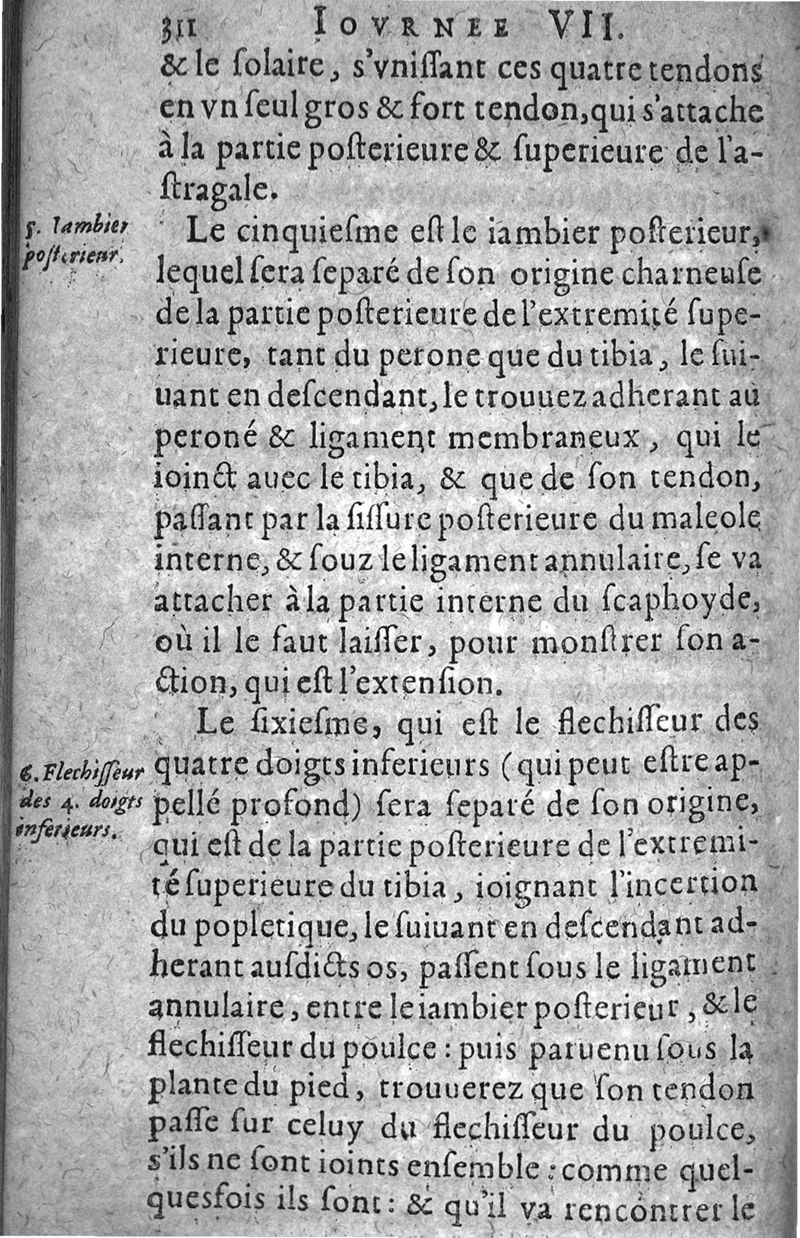 311 IOVRNEE VII.
& le ſolaire, s'vniſſant ces quatre tendons
en vn ſeul gros & fort tendon, qui s'attache
à la partie poſterieure & ſuperieure de l'a-
ſtragale.
5. Iambier
poſterieur.
Le cinquieſme eſt le iambier poſterieur,
lequel ſera ſeparé de ſon origine charneuſe
de la partie poſterieure de l'extremité ſupe-
rieure, tant du perone que du tibia, le ſui-
uant en deſcendant, le trouuez adherant au
peroné & ligament membraneux, qui le
ioinct auec le tibia, & que de ſon tendon,
paſſant par la ſiſſure poſterieure du maleole
interne, & ſouz le ligament annulaire, ſe va
attacher à la partie interne du ſcaphoyde,
où il le faut laiſſer, pour monſtrer ſon a-
ction, qui eſt l'extenſion.
Le ſixieſme, qui eſt le flechiſſeur des
6. Flechiſſeur
des 4. doigts
inferieurs.
quatre doigts inferieurs (qui peut eſtre ap-
pellé profond) ſera ſeparé de ſon origine,
qui eſt de la partie poſterieure de l'extremi-
té ſuperieure du tibia, ioignant l'incertion
du popletique, le ſuiuant en deſcendant ad-
herant auſdicts os, paſſent ſous le ligament
annulaire, entre le iambier poſterieur, & le
flechiſſeur du poulce : puis paruenu ſous la
plante du pied, trouuerez que ſon tendon
paſſe ſur celuy du flechiſſeur du poulce,
s'ils ne ſont ioints enſemble : comme quel-
quesfois ils ſont : & qu'il va rencontrer le